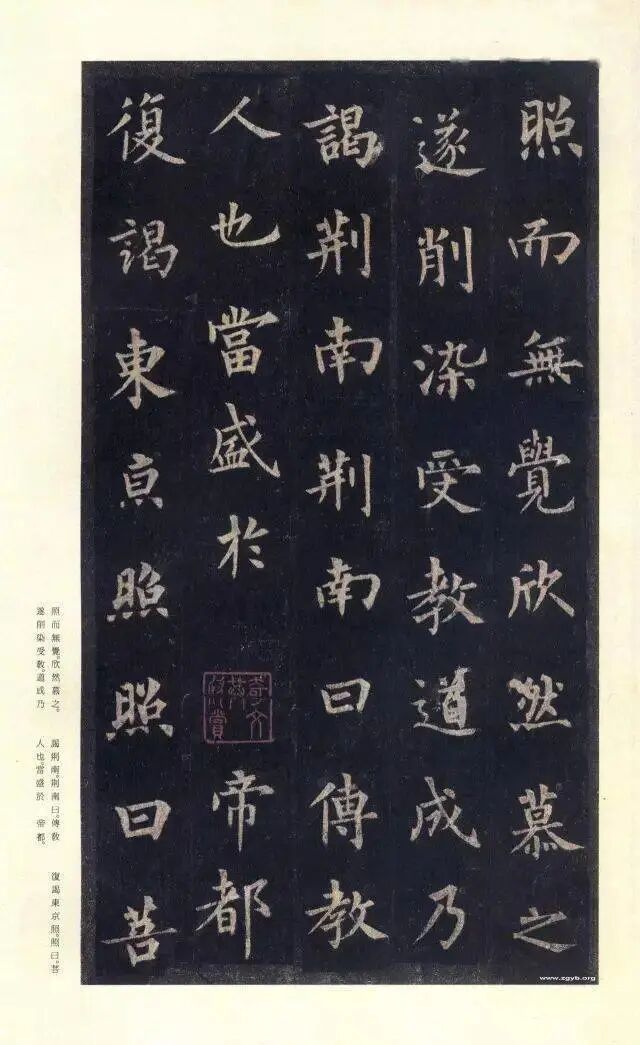 照而無覺欣然慕之
遂削染受教道成乃
謁荆南荆南曰傳教
人也當盛於 帝都
復謁東京照照曰菩
www.zgyb.org
照而無覺。欣然慕之。
遂削染受教。道成乃
謁荆南。荆南曰。傳教
人也。當盛於 帝都。
復謁東京照。照曰。菩